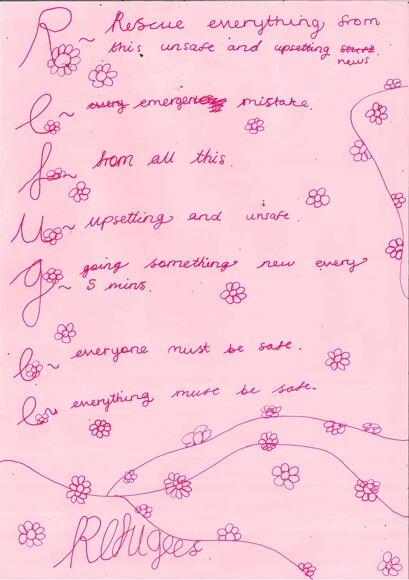 R ~ Rescue everything from
this unsafe and upsetting
news
e ~ every emergency mistake.
f ~ from all this.
u ~ upsetting and unsafe.
g ~ going something new every
5 mins.
e ~ everyone must be safe.
e ~ everything must be safe.
Refugees